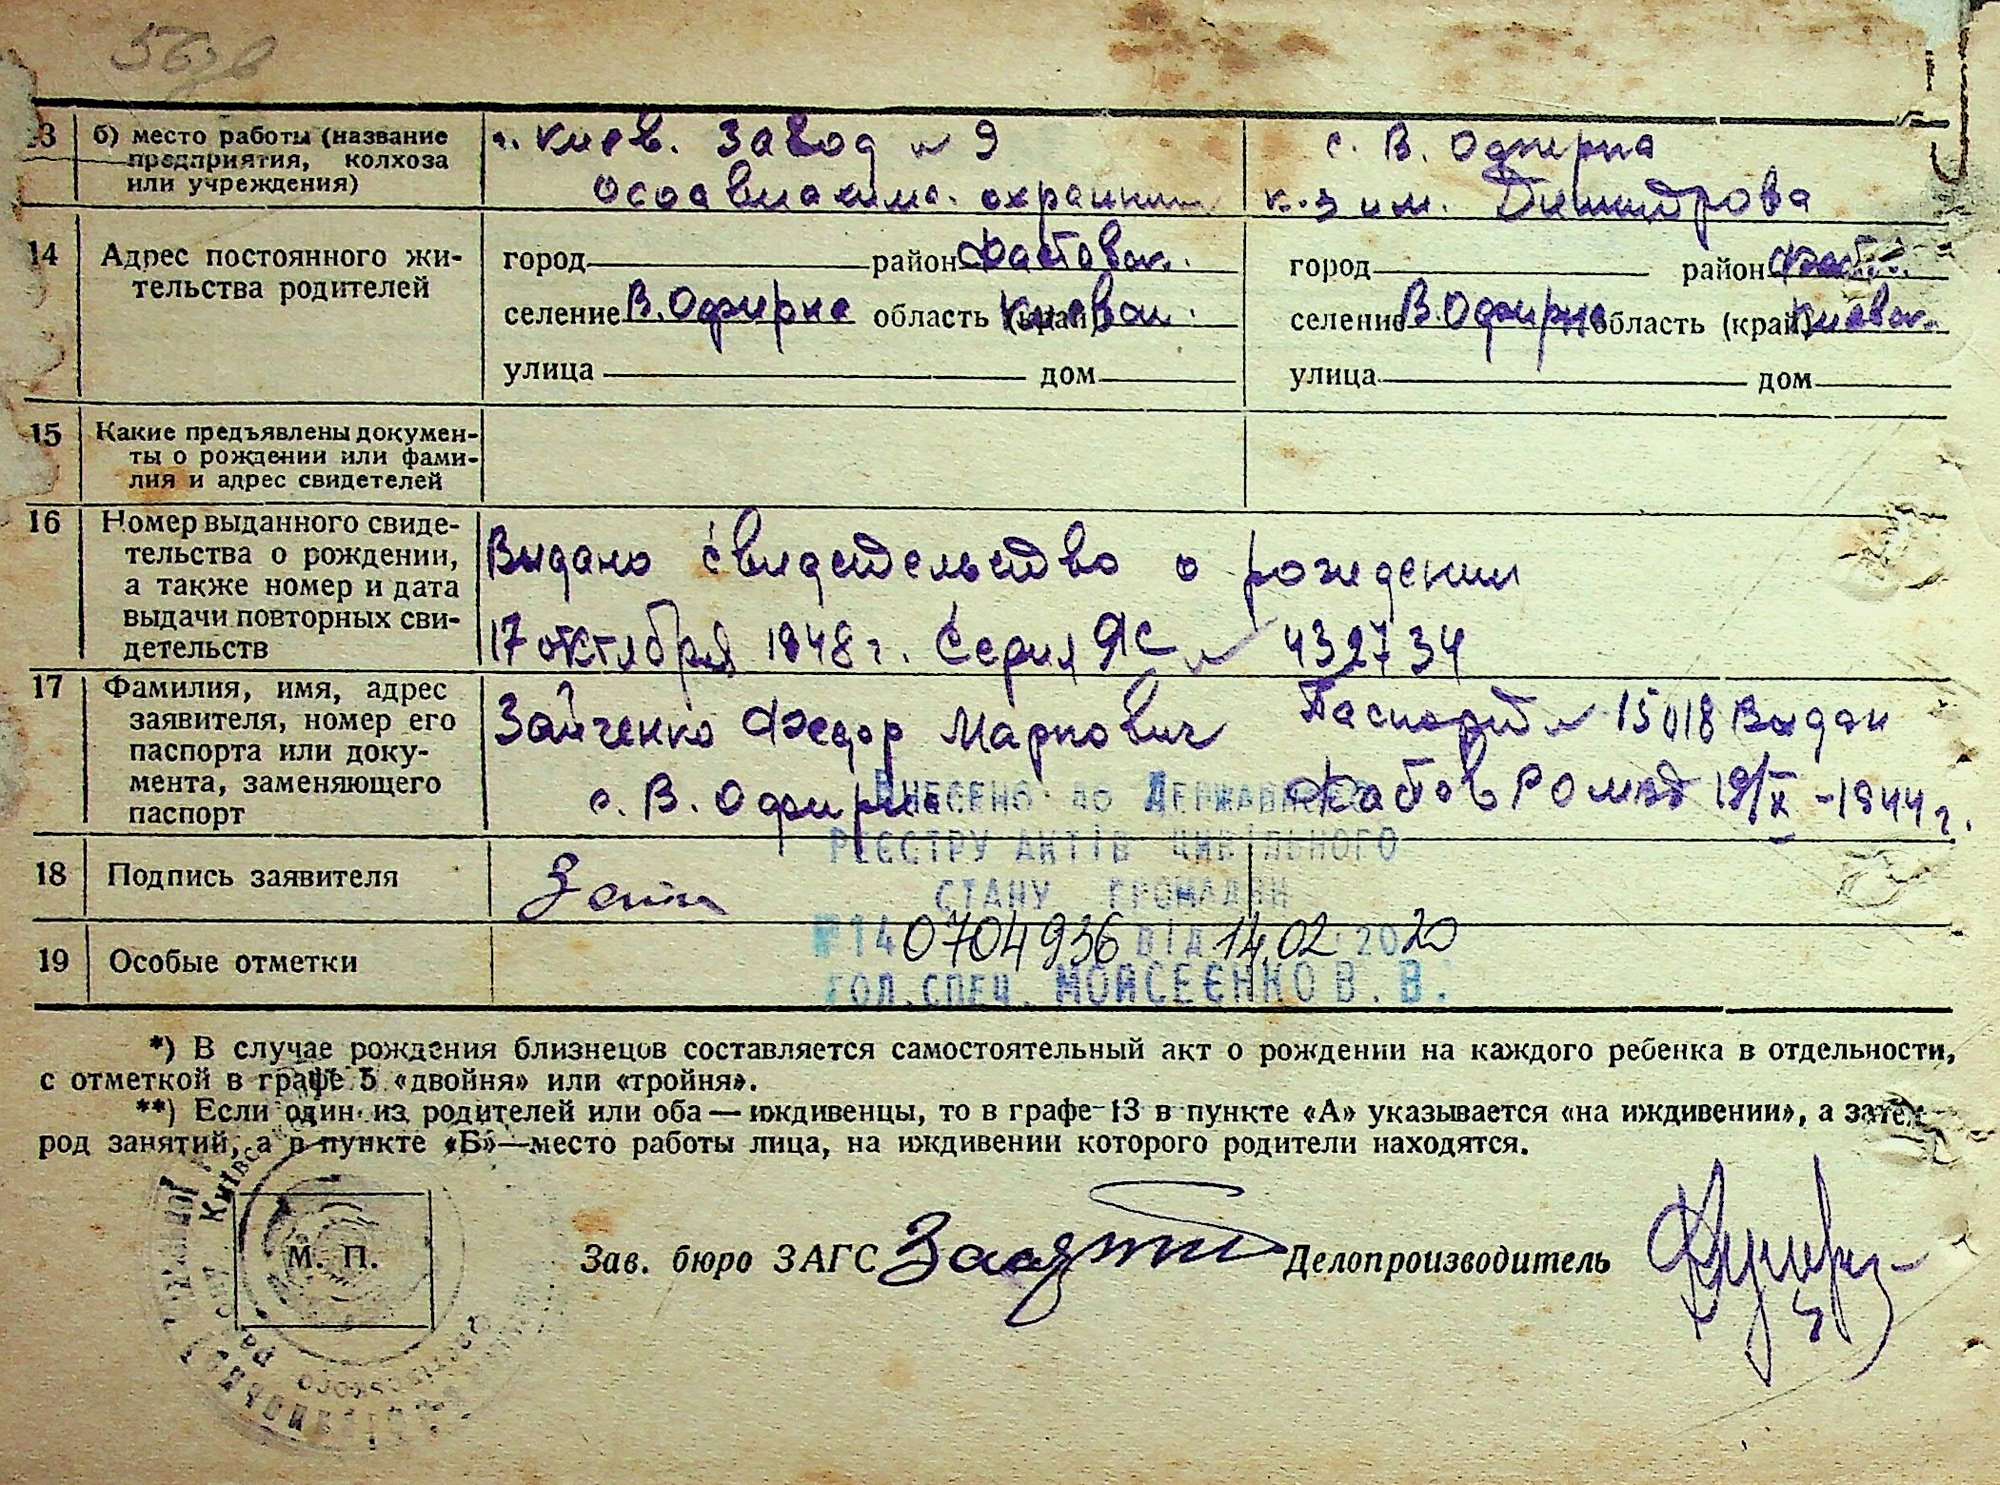 13 б) место работы (название
предприятия, колхоза
или учреждения)
г. Киев. Завод № 9
Осоавиахима. охранник
с. В. Офирна
к-з им. Димитрова
14 Адрес постоянного жи-
тельства родителей
город район Фастовск.
селение В. Офирна область (край) Киевск.
улица дом
город район Фаст.
селение В. Офирна область (край) Киевск.
улица дом
15 Какие предъявлены докумен-
ты о рождении или фами-
лия и адрес свидетелей
16 Номер выданного свиде-
тельства о рождении,
а также номер и дата
выдачи повторных сви-
детельств
Выдано свидетельство о рождении
17 октября 1948 г. Серия ЯС № 432734
17 Фамилия, имя, адрес
заявителя, номер его
паспорта или доку-
мента, заменяющего
паспорт
Зайченко Федор Маркович
с. В. Офирна
Паспорт № 15018 Выдан
Фастов РОМВД 19/X -1944 г.
Внесено до Державного
реєстру актів цивільного
стану громадян
№ 140704936 від 14.02.2020
гол. спец. Мойсеєнко В. В.
18 Подпись заявителя
19 Особые отметки
*) В случае рождения близнецов составляется самостоятельный акт о рождении на каждого ребенка в отдельности,
с отметкой в графе 5 «двойня» или «тройня».
**) Если один из родителей или оба — иждивенцы, то в графе 13 в пункте «А» указывается «на иждивении», а затем
род занятий, а в пункте «Б»—место работы лица, на иждивении которого родители находятся.
М. П.
Зав. бюро ЗАГС
Делопроизводитель